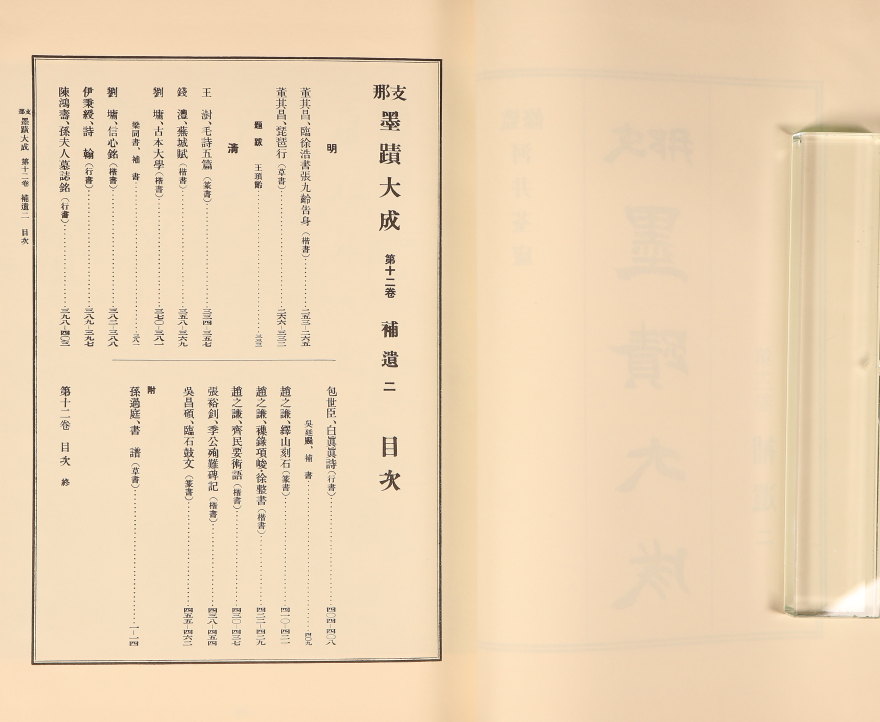 支那墨蹟大成 第十二卷 補遺二 目次
明
董其昌、臨徐浩書張九齡告身(楷書)……二五三-二六五
董其昌、琵琶行(草書)……二六六-三三二
題跋 王頊齡……三三三
清
王 澍、毛詩五篇(篆書)……三三四-三五七
錢 灃、蕪城賦(楷書)……三五八-三六九
劉 墉、古本大學(楷書)……三七〇-三八一
梁同書、補書……三八一
劉 墉、信心銘(楷書)……三八二-三八八
伊秉綬、詩翰(行書)……三八九-三九七
陳鴻壽、孫夫人墓誌銘(行書)……三九八-四〇三
包世臣、白眞眞詩(行書)……四〇四-四〇八
吳廷颺、補書……四〇九
趙之謙、繹山刻石(篆書)……四一〇-四二一
趙之謙、襍錄項峻·徐整書(楷書)……四二二-四二九
趙之謙、齊民要術語(楷書)……四三〇-四三七
張裕釗、李公殉難碑記(楷書)……四三八-四五四
吳昌碩、臨石鼓文(篆書)……四五五-四六二
附
孫過庭、書譜(草書)……一-一四
第十二卷 目次 終
支那墨蹟大成 第十二卷 補遺二 目次